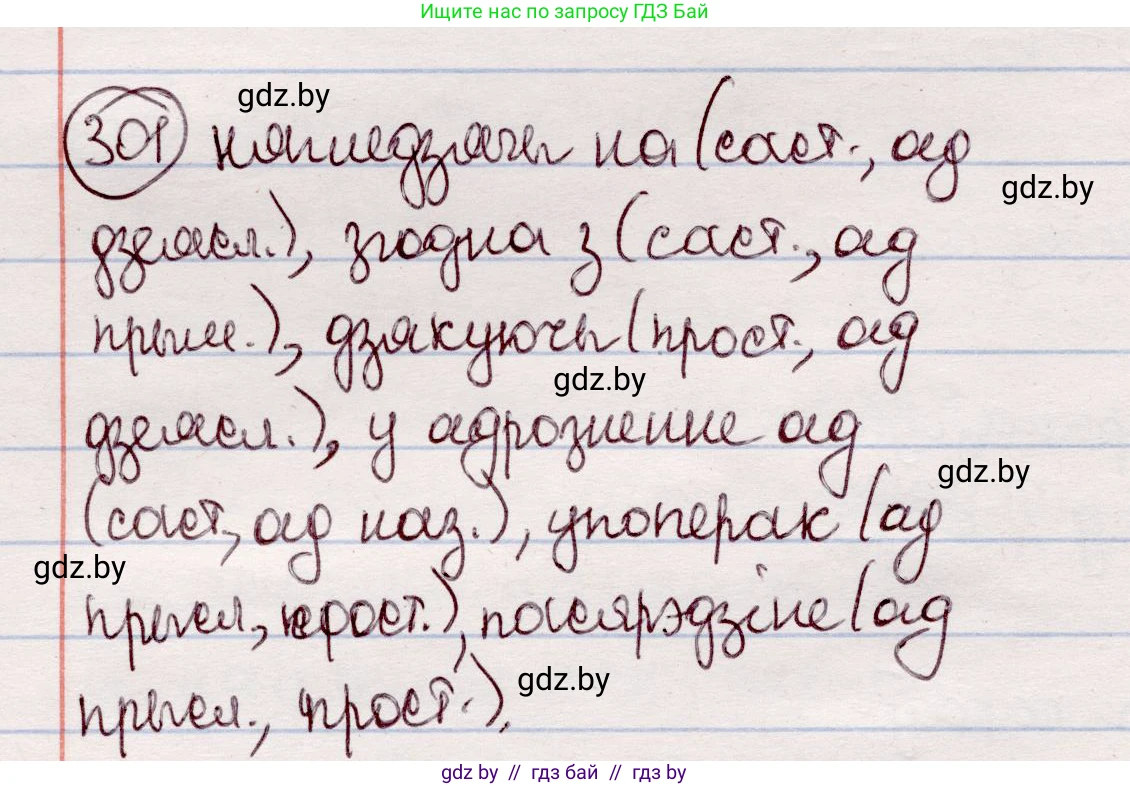 Ищите нас по запросу ГДЗ Бай
gdz.by
301 нягледзячы на (саст., ад
gdz.by
дзеясл.), згодна з (саст., ад
прым.), дзякуючы (прост., ад
gdz.by
дзеясл.), у адрозненне ад
gdz.by
(саст, ад наз.), упоперак (ад
gdz.by
прысл., прост.), пасярэдзіне (ад
gdz.by
прысл., прост.).
gdz by // гдз бай // гдз by